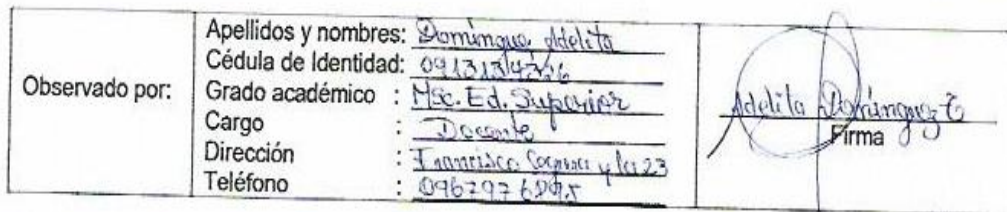 Observado por:
Apellidos y nombres: Dominguez Adelita
Cédula de Identidad:
Grado académico : MSc. Ed. Superior
Cargo : Docente
Dirección : Francisco y la 23
Teléfono :
Adelita Dominguez T
Firma